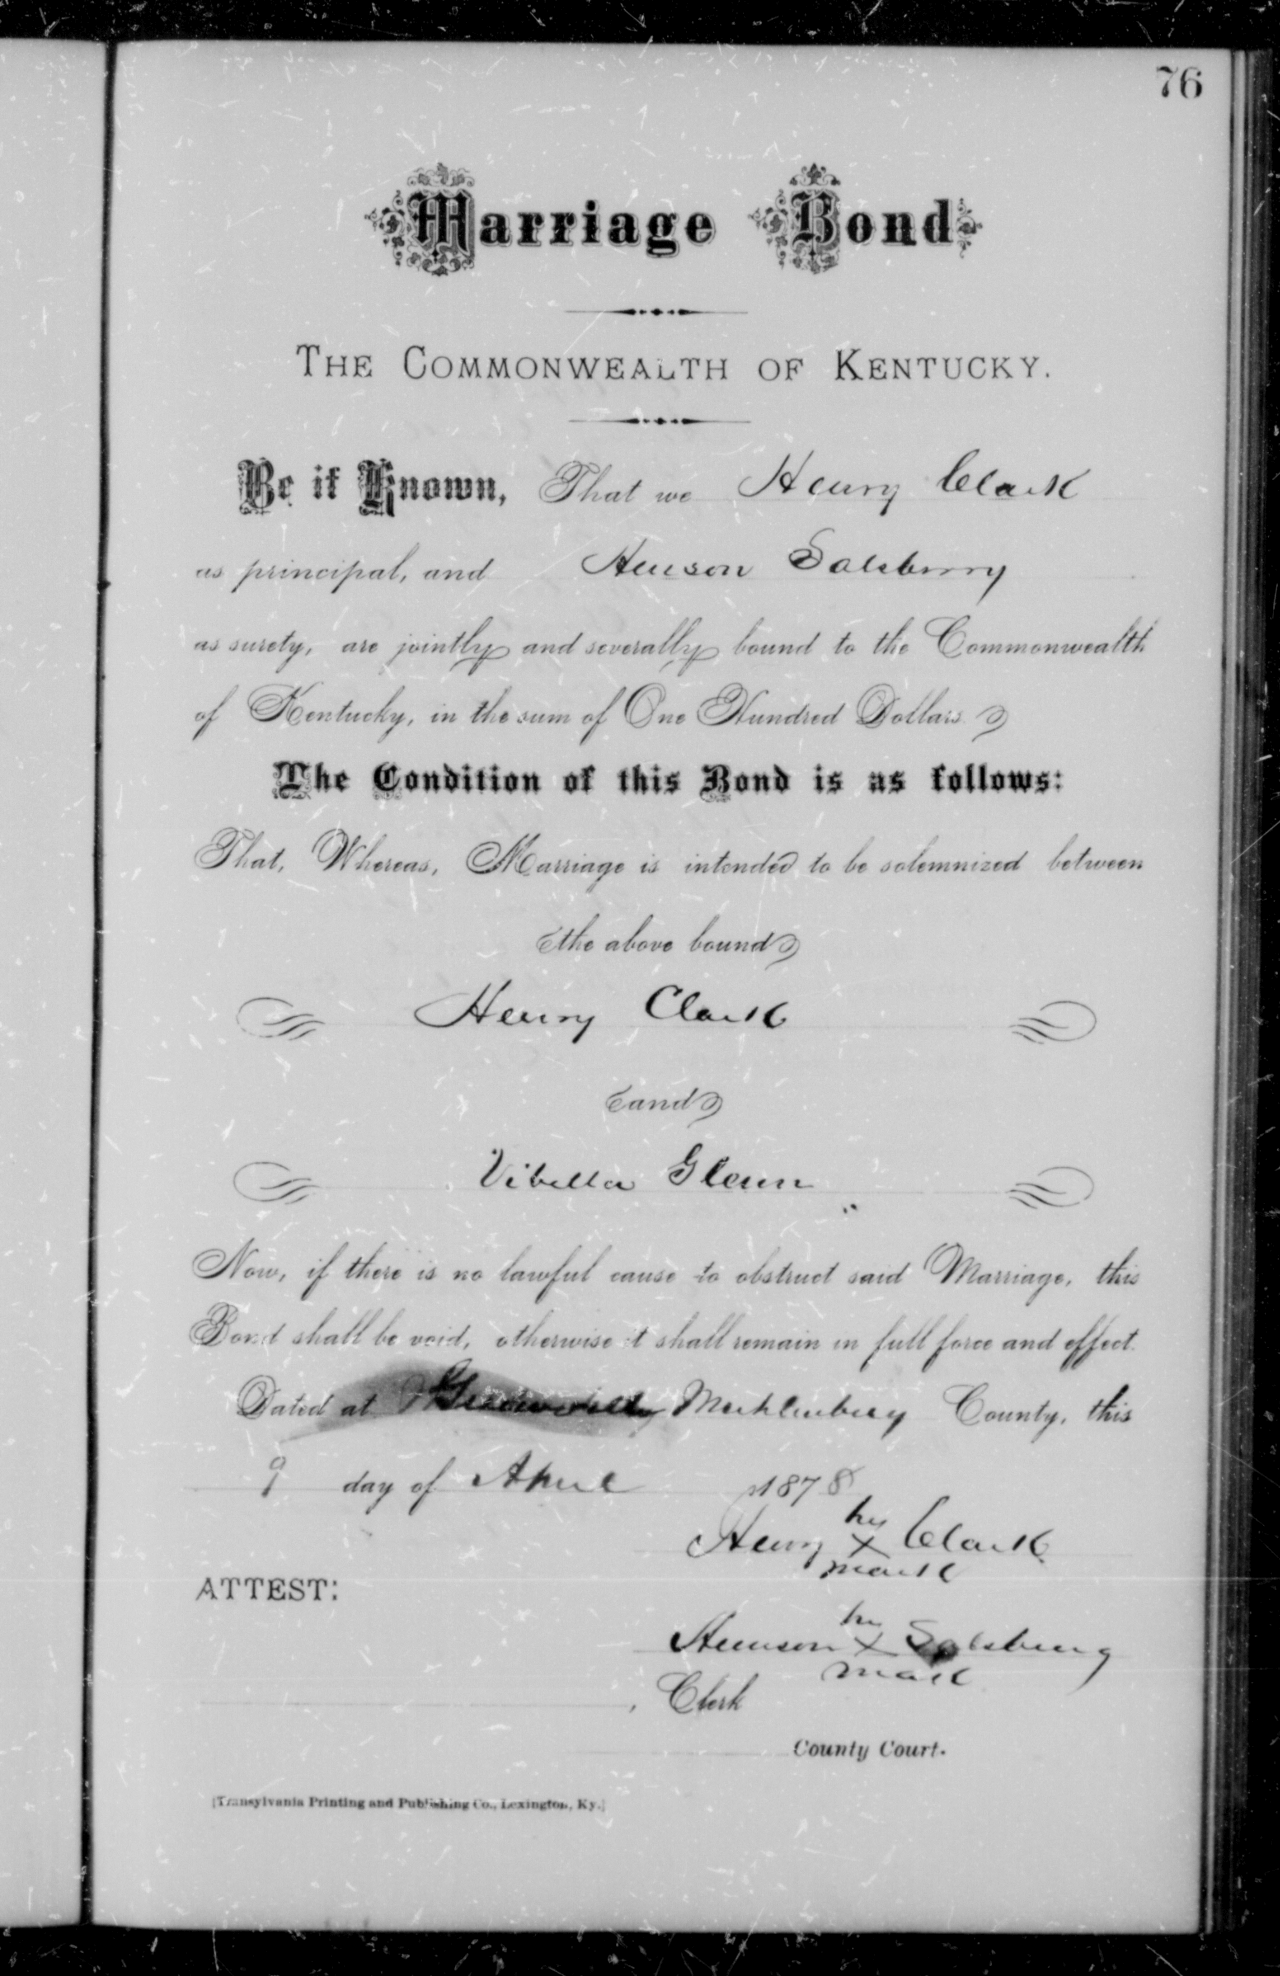 76
Marriage Bond
THE COMMONWEALTH OF KENTUCKY.
Be it Known, That we Henry Clark
as principal, and Henson Salsberry
as surety, are jointly and severally bound to the Commonwealth
of Kentucky, in the sum of One Hundred Dollars.
The Condition of this Bond is as follows:
That, Whereas, Marriage is intended to be solemnized between
the above bound
Henry Clark
and
Vibella Glenn
Now, if there is no lawful cause to obstruct said Marriage, this
Bond shall be void, otherwise it shall remain in full force and effect.
Dated at Muhlenberg County, this
9 day of April 1878
his
Henry X Clark
mark
ATTEST:
his
Henson X Salsberry
mark
, Clerk
County Court.
[Transylvania Printing and Publishing Co., Lexington, Ky.]